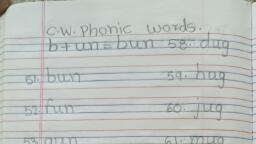 C.W. Phonic words.
b+un=bun 58. dug
51. bun 59. hug
52. fun 60. jug
53. gun 61. mug